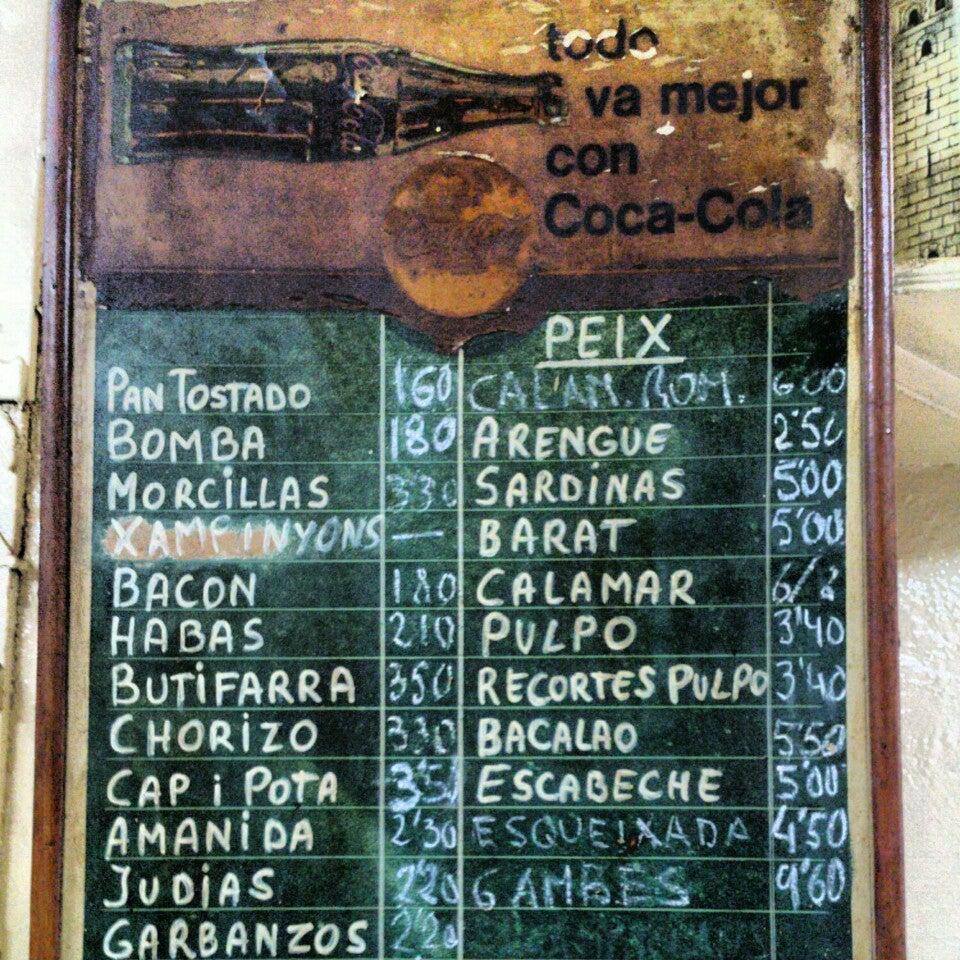 todo
va mejor
con
Coca-Cola
Coca-Cola
PEIX
PAN TOSTADO 160
BOMBA 180
MORCILLAS 330
XAMPINYONS —
BACON 180
HABAS 210
BUTIFARRA 350
CHORIZO 330
CAP i POTA 3'5
AMANIDA 2'30
JUDIAS 220
GARBANZOS 220
CALAM. ROM. 6'00
ARENGUE 2'50
SARDINAS 5'00
BARAT 5'00
CALAMAR
PULPO 3'40
RECORTES PULPO 3'40
BACALAO 5'50
ESCABECHE 5'00
ESQUEIXADA 4'50
GAMBES 9'60